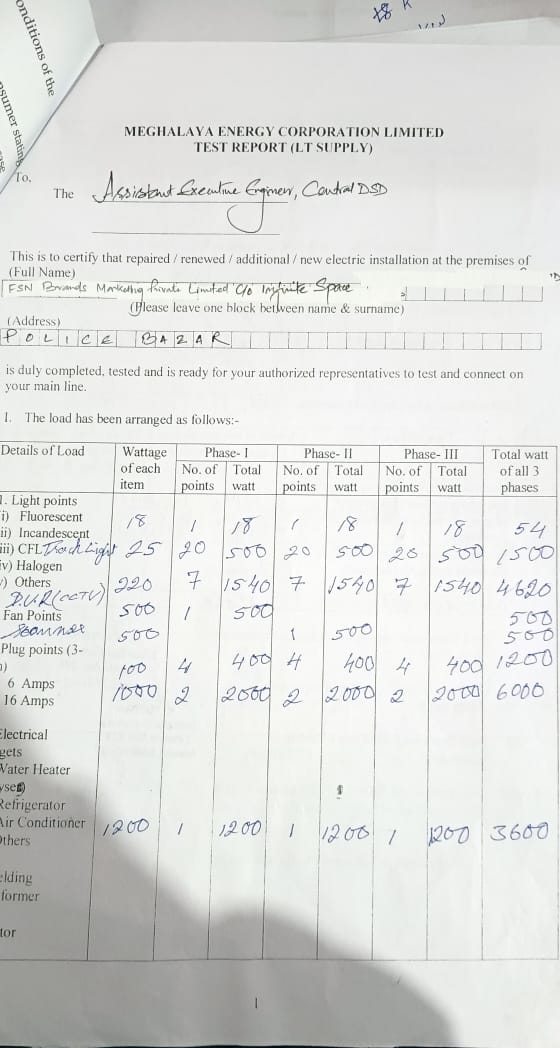 onditions of the
nsumer stating
MEGHALAYA ENERGY CORPORATION LIMITED
TEST REPORT (LT SUPPLY)
To,
The Assistant Executive Engineer, Central DSD
This is to certify that repaired / renewed / additional / new electric installation at the premises of
(Full Name)
FSN Brands Marketing Private Limited C/o Infinite Space
(Please leave one block between name & surname)
(Address)
POLICE BAZAR
is duly completed, tested and is ready for your authorized representatives to test and connect on
your main line.
1. The load has been arranged as follows:-
Details of Load Wattage of each item Phase- I Phase- II Phase- III Total watt of all 3 phases
No. of points Total watt No. of points Total watt No. of points Total watt
1. Light points
i) Fluorescent 18 1 18 1 18 1 18 54
ii) Incandescent
iii) CFL Track Light 25 20 500 20 500 20 500 1500
iv) Halogen
) Others 220 7 1540 7 1540 7 1540 4620
D.V.R (CCTV) 500 1 500 500
Fan Points
500 1 500 500
Plug points (3-
) 100 4 400 4 400 4 400 1200
6 Amps
16 Amps 1000 2 2000 2 2000 2 2000 6000
Electrical
gets
Water Heater
yses)
Refrigerator
Air Conditioner 1200 1 1200 1 1200 1 1200 3600
Others
elding
former
tor
1